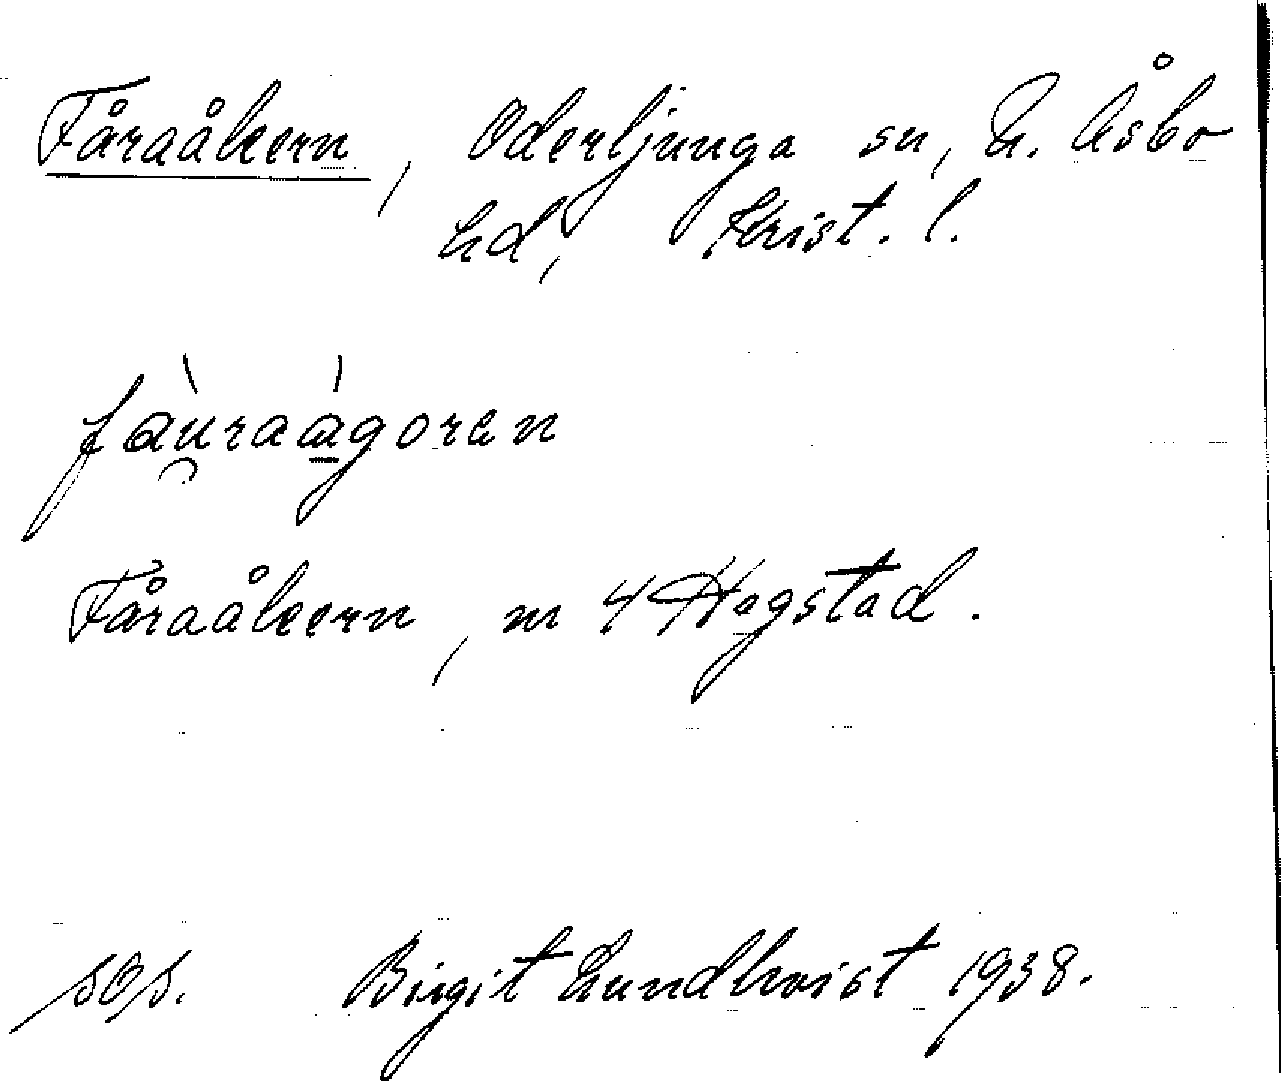 Fåraåkern, Oderljunga sn, N. Åsbo
hd, Krist. l.
fàu̯raágoren
Fåraåkern, m 4 Hagstad.
sOs. Birgit Lundkvist 1938.